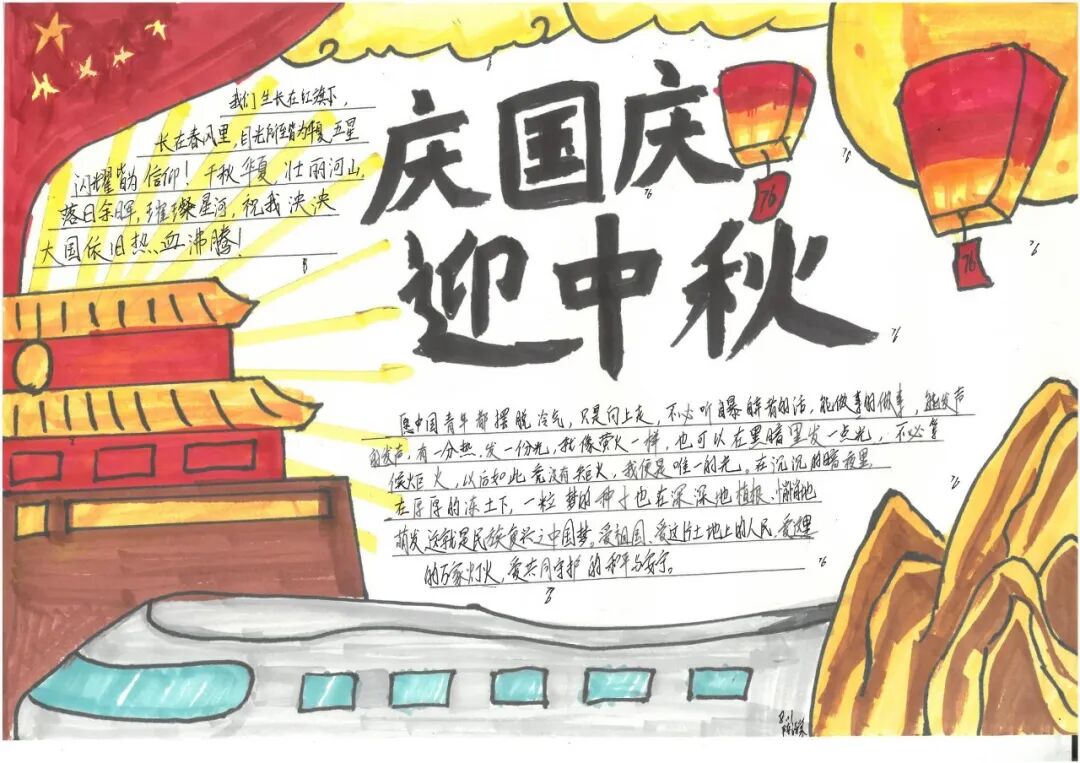 我们生长在红旗下，
长在春风里，目光所至皆为华夏，五星
闪耀皆为信仰！千秋华夏，壮丽河山，
落日余晖，璀璨星河，祝我泱泱
大国依旧热血沸腾！
庆国庆
迎中秋
76
76
愿中国青年都摆脱冷气，只是向上走，不必听自暴自弃者的话，能做事的做事，能发声
的发声，有一分热，发一份光，就像萤火一样，也可以在黑暗里发一点光，不必等
候炬火，以后如此竟没有炬火，我便是唯一的光。在沉沉的暗夜里，
在厚厚的冻土下，一粒梦的种子也在深深地植根，悄悄地
萌发，这就是民族复兴之中国梦。爱祖国，爱这片土地上的人民，爱
的万家灯火，爱共同守护的和平与安宁。
76
76
76
76
76
76